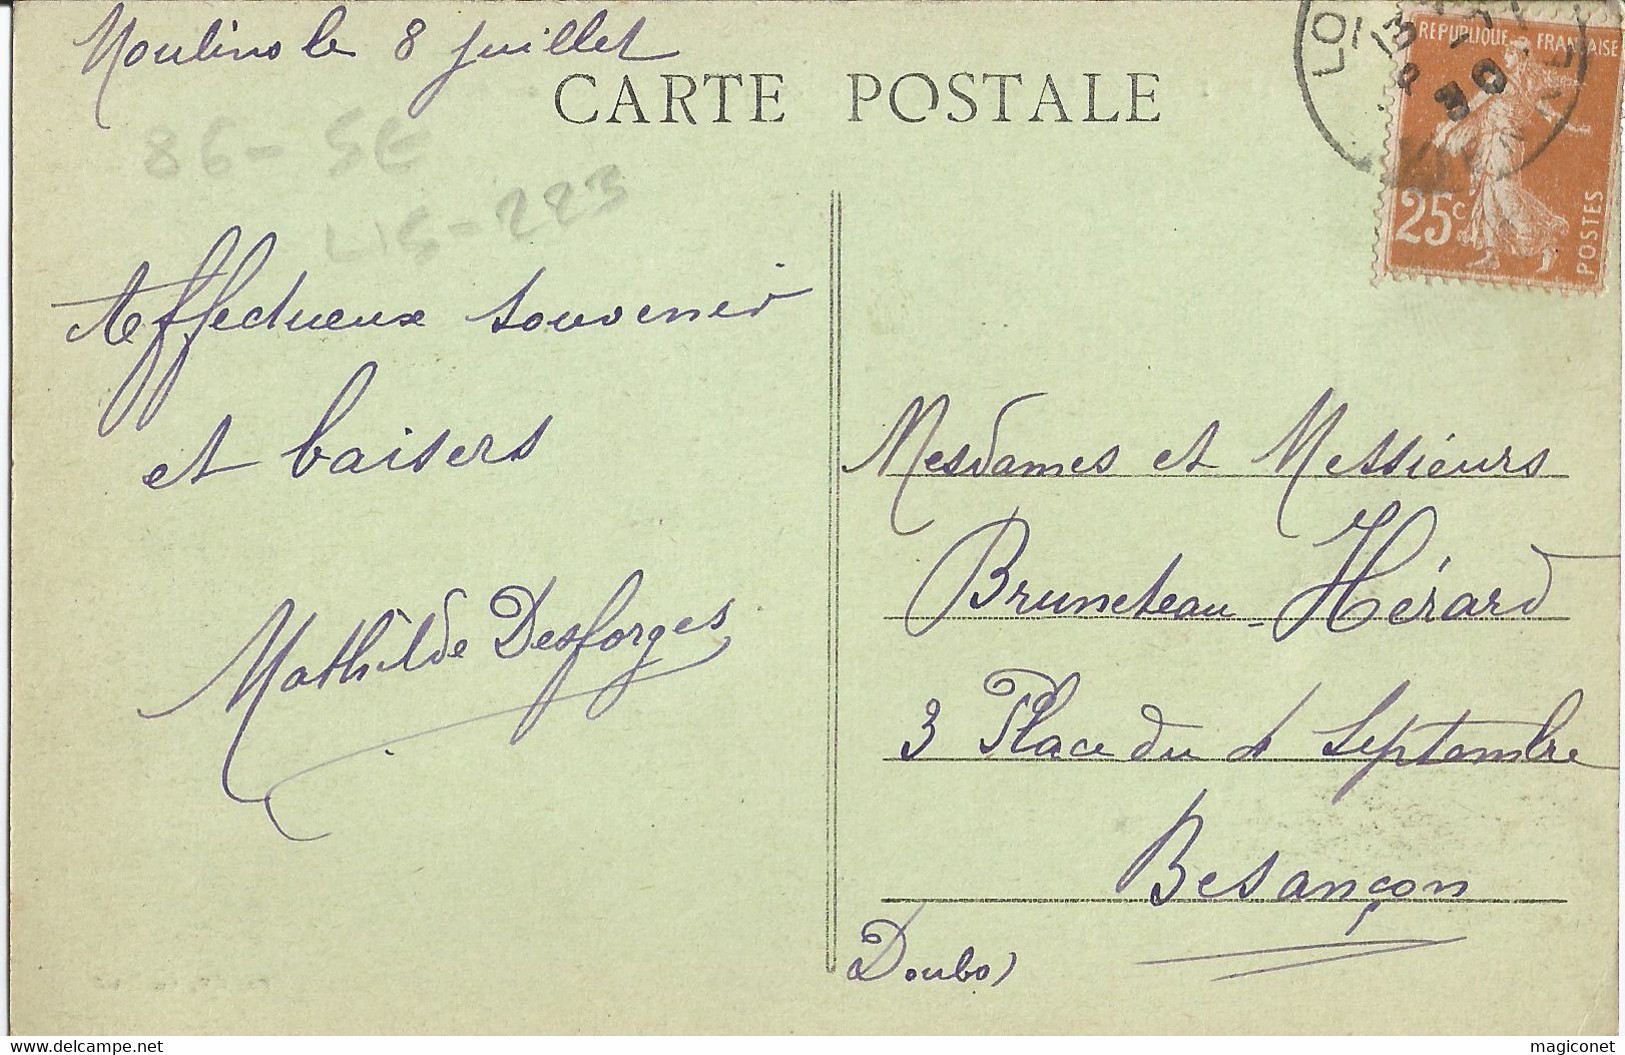 Moulins le 8 juillet
CARTE POSTALE
86 - SE
LIS - 223
REPUBLIQUE FRANÇAISE
25c
POSTES
LO
30
VIENNE
Affectueux souvenir
et baisers
Mathilde Desforges
Mesdames et Messieurs
Bruneteau-Hérard
3 Place du 4 Septembre
Besançon
Doubs)
delcampe.net
magiconet